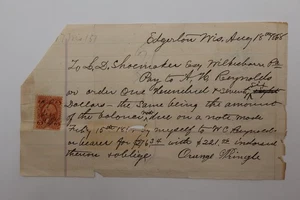 Edgerton Wis, Aug 18th 1865
To L. D. Shoemaker Esq Wilkesbarre Pa
Pay to A. H. Reynolds
or order One Hundred & Seventy
Dollars - the same being the amount
of the balance due on a note made
Feby 15th by myself to W. C. Reynolds
or bearer for $ with indorsed
thereon & oblige Orange Pringle